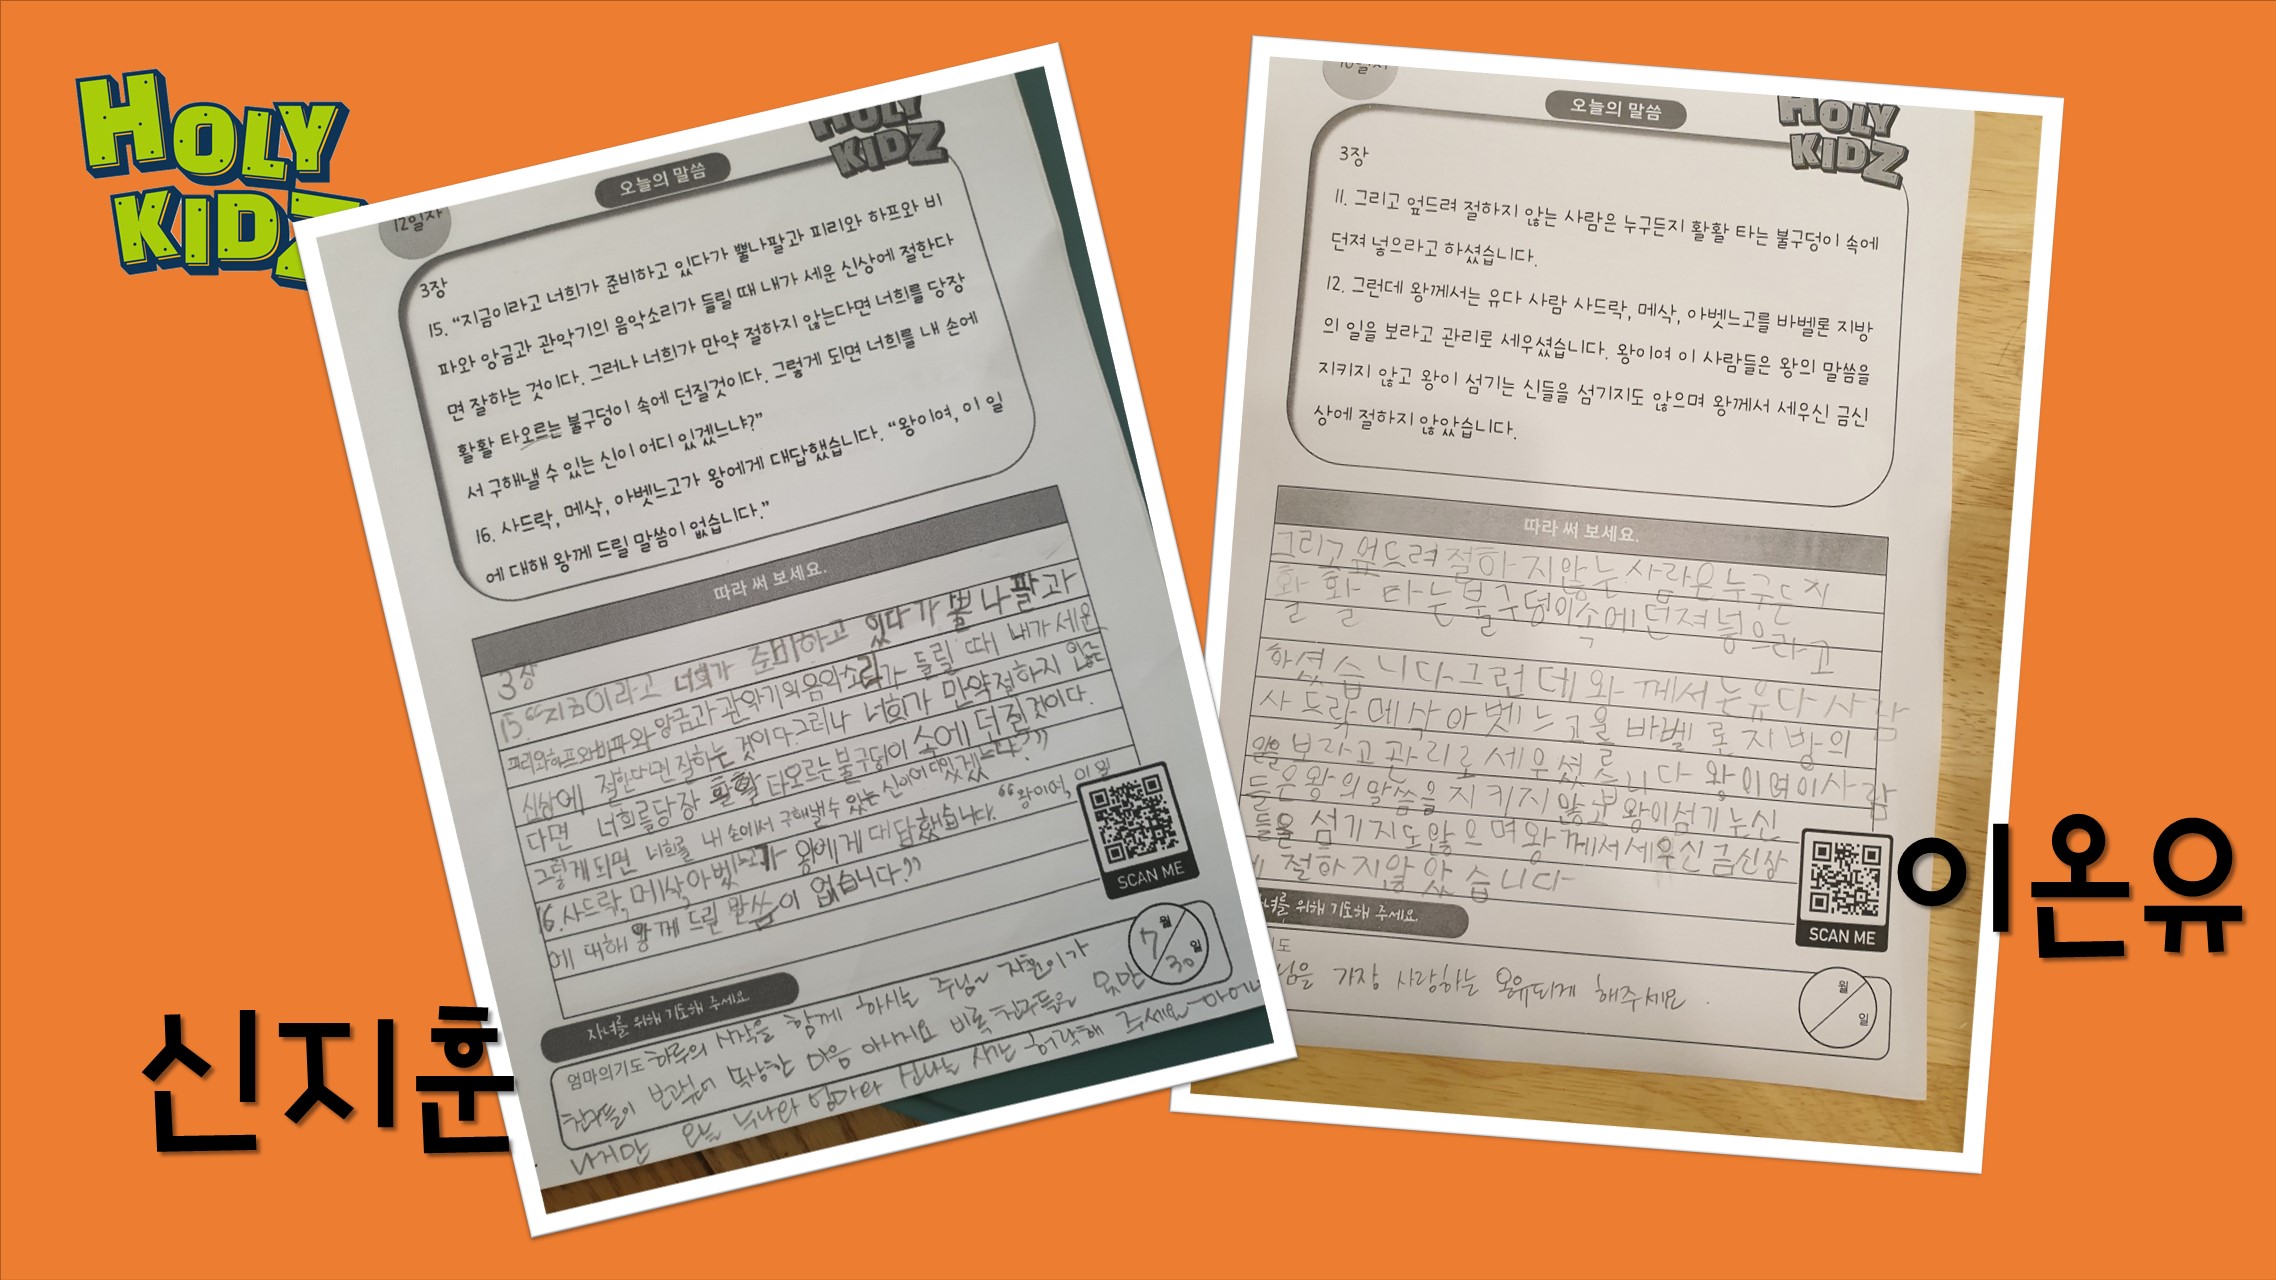 HOLY
KIDZ
12일차
오늘의 말씀
HOLY
KIDZ
3장
15. “지금이라고 너희가 준비하고 있다가 뿔나팔과 피리와 하프와 비
파와 양금과 관악기의 음악소리가 들릴 때 내가 세운 신상에 절한다
면 잘하는 것이다. 그러나 너희가 만약 절하지 않는다면 너희를 당장
활활 타오르는 불구덩이 속에 던질것이다. 그렇게 되면 너희를 내 손에
서 구해낼 수 있는 신이 어디 있겠느냐?”
16. 사드락, 메삭, 아벳느고가 왕에게 대답했습니다. “왕이여, 이 일
에 대해 왕께 드릴 말씀이 없습니다.”
따라 써 보세요.
3장
15. “지금이라고 너희가 준비하고 있다가 뿔나팔과
피리와하프와비파와 양금과 관악기의음악소리가 들릴 때 내가세운
신상에 절한다면 잘하는 것이다.그러나 너희가 만약절하지 않는
다면 너희를당장 활활 타오르는불구덩이 속에 던질것이다.
그렇게되면 너희를 내 손에서 구해낼수 있는 신이어디있겠느냐?”
16.사드락, 메삭,아벳느고가 왕에게 대답했습니다. “왕이여, 이일
에 대해 왕께 드릴 말씀이 없습니다.”
SCAN ME
자녀를 위해 기도해 주세요.
7월
30일
엄마의기도 하루의 시작을 함께 하시는 주님~ 지훈이가
친구들이 보고싶어 속상한 마음 아시지요 비록 친구들을 못만
나지만 오늘 누나와 엄마와 신나는 시간 허락해 주세요~아멘
신지훈
10일차
오늘의 말씀
HOLY
KIDZ
3장
11. 그리고 엎드려 절하지 않는 사람은 누구든지 활활 타는 불구덩이 속에
던져 넣으라고 하셨습니다.
12. 그런데 왕께서는 유다 사람 사드락, 메삭, 아벳느고를 바벨론 지방
의 일을 보라고 관리로 세우셨습니다. 왕이여 이 사람들은 왕의 말씀을
지키지 않고 왕이 섬기는 신들을 섬기지도 않으며 왕께서 세우신 금신
상에 절하지 않았습니다.
따라 써 보세요.
그리고엎드려절하지않는사람은누구든지
활 활 타는불구덩이속에던져넣으라고
하셨습니다그런데왕께서는유다사람
사드락메삭아벳느고를바벨론지방의
일을보라고관리로세우셨습니다왕이여이사람
들은왕의말씀을지키지않고왕이섬기는신
들을섬기지도않으며왕께서세우신금신상
에 절하지않았습니다
SCAN ME
자녀를 위해 기도해 주세요.
월
일
님을 가장 사랑하는 온유되게 해주세요.
이온유